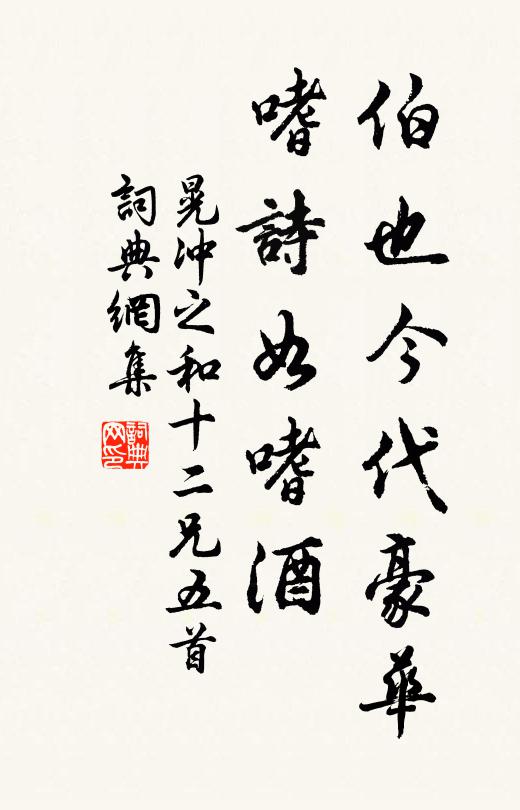 伯也今代豪華
嗜詩如嗜酒
晃沖之和十二兄五首
詞典網集
詞典网印